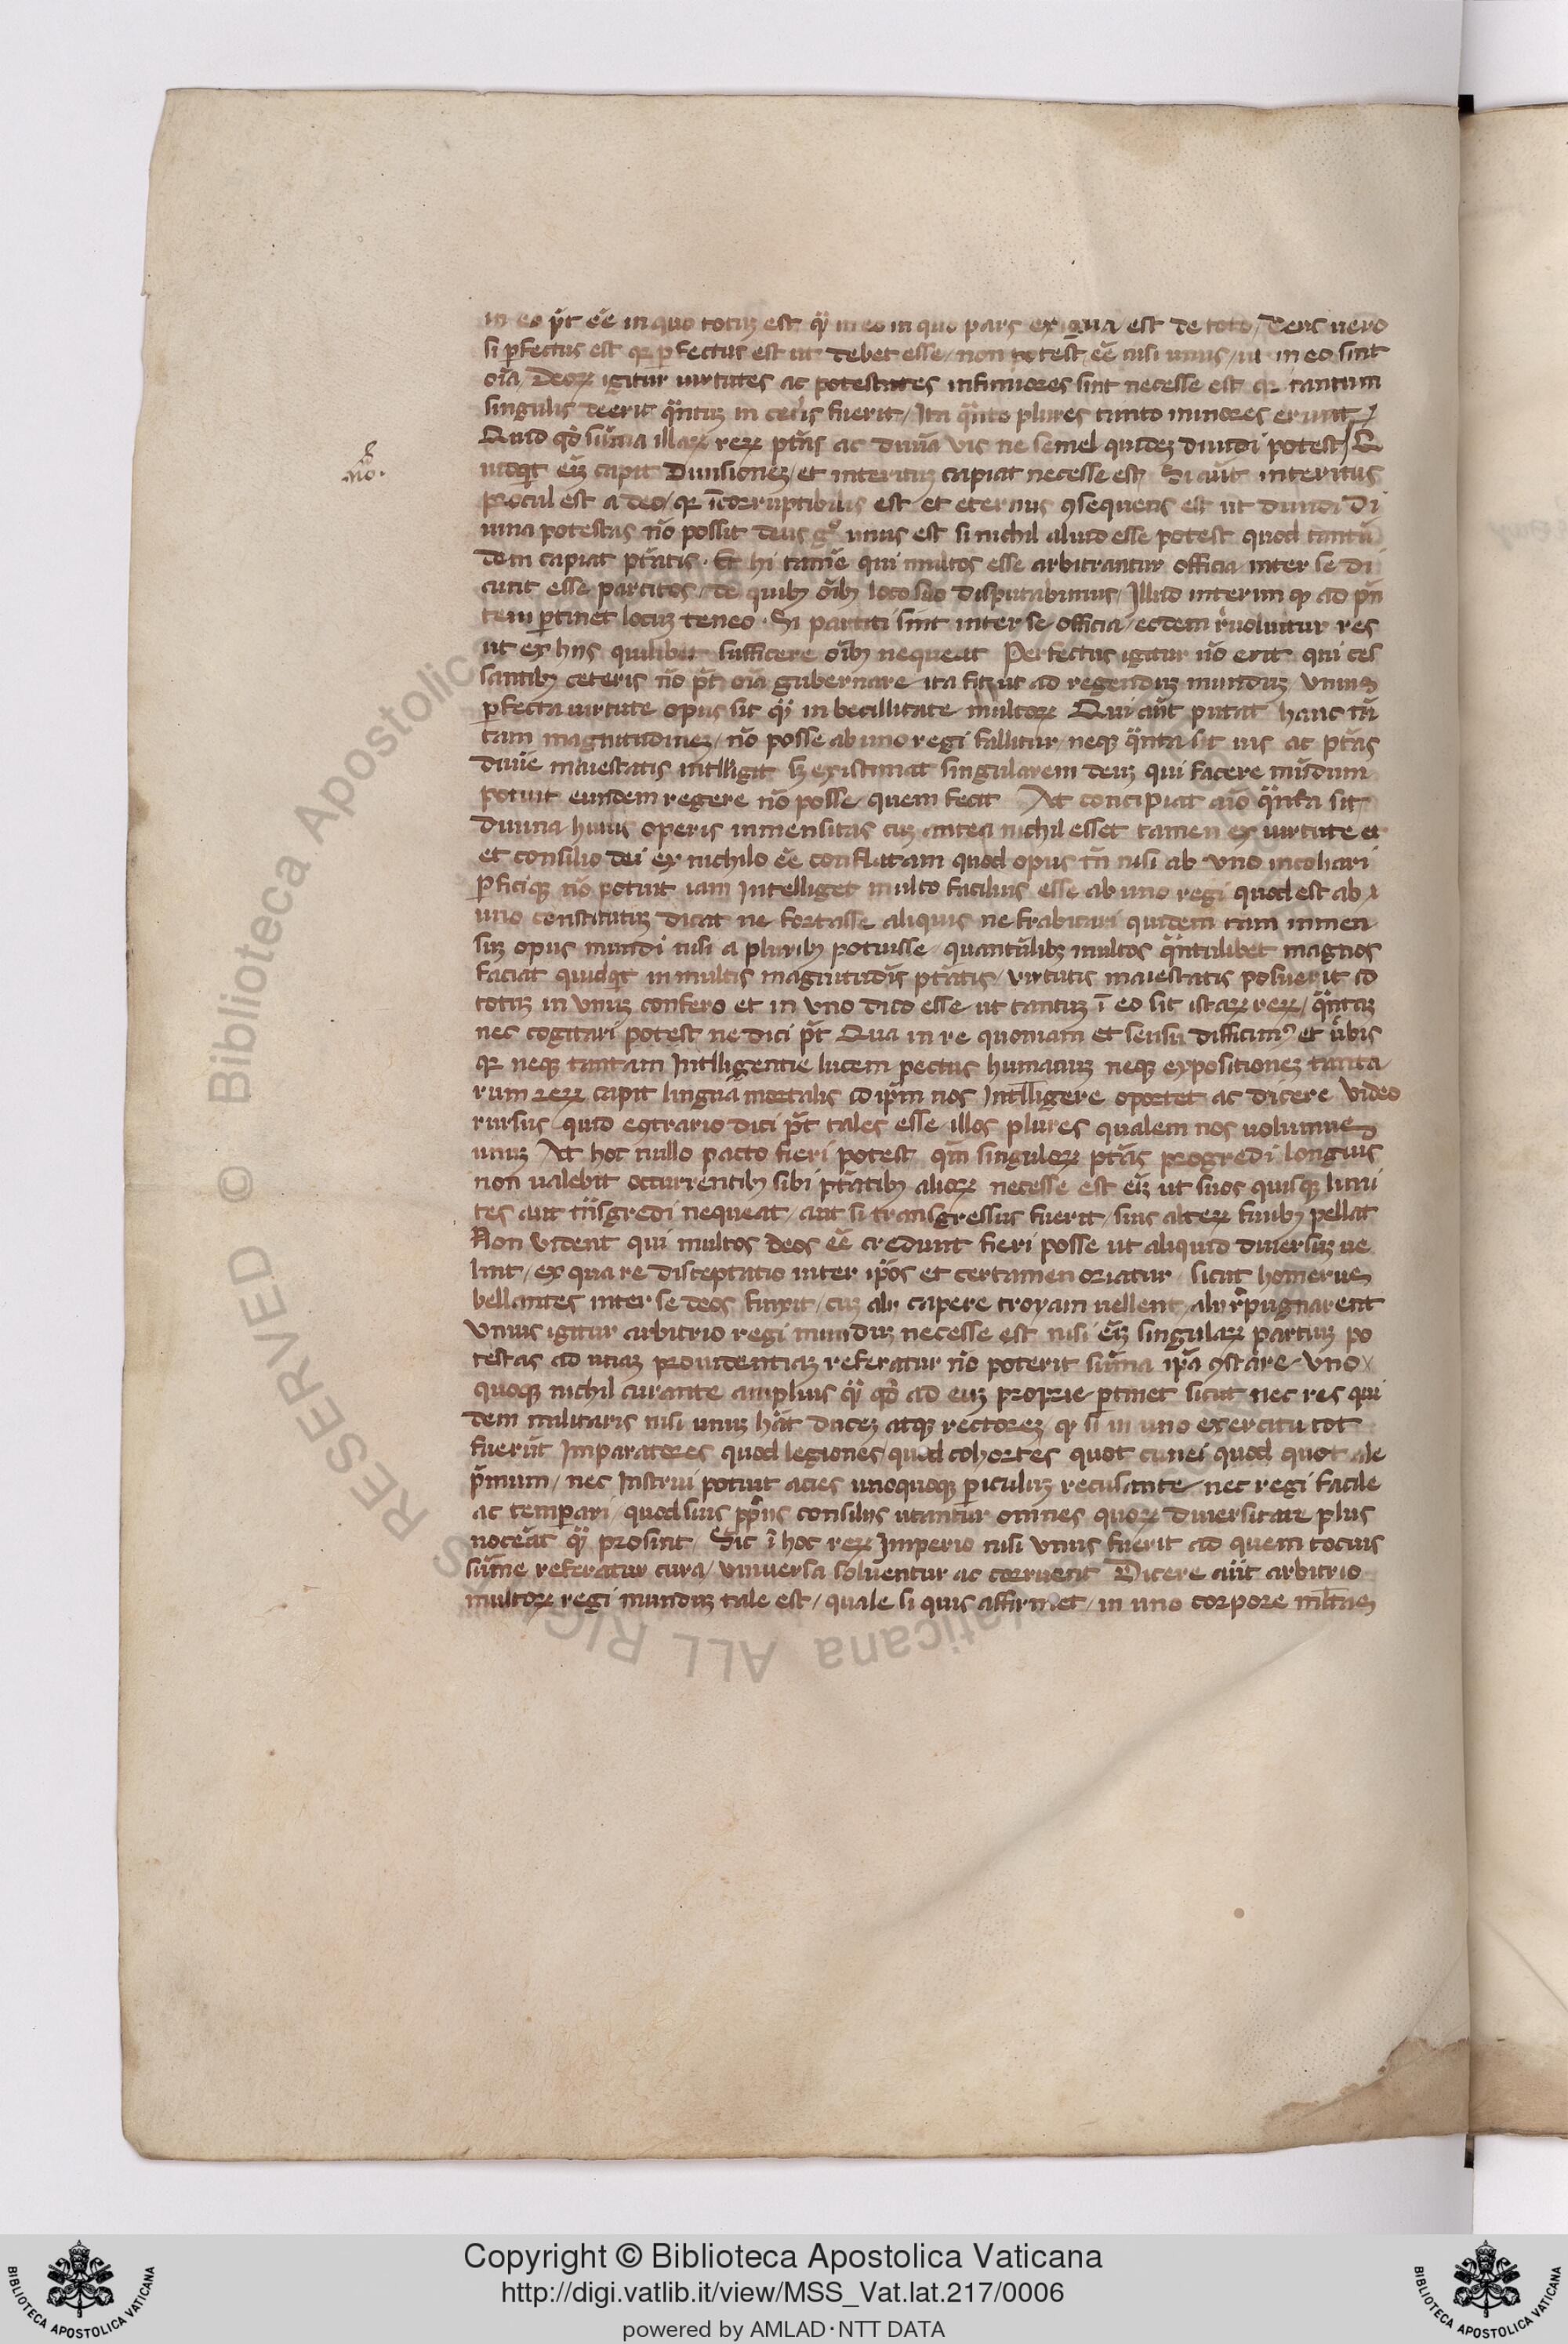 in eo p̄t ēe in quo totuʒ est qͣ in eo in quo pars exigua est de toto / Deus uero
si ꝑfectus est qꝛ ꝑfectus est ut debet esse / non potest ēe nisi unus / ut in eo sint
oīa / Deoꝝ igitur uirtutes ac potestates infirmiores sint necesse est qꝛ tantum
singulis deerit qͣntuʒ in cet̄is fuerit / Ita qͣnto plures tanto minores erunt
Quid qď sūma illaꝝ reꝝ ptās ac diuīa vis ne semel quideʒ diuidi potest / Q
uidqͥt eīʒ capit Diuisioneʒ / et interituʒ capiat necesse est Si aūt interitus
No.
procul est a deo / qꝛ īcorruptibilis est et eternus ꝯsequens est ut diuidi Di
uina potestas nō possit deus gͦ unus est si nichil aliud esse potest quod tantū
dem capiat ptātis · Et hi tamē qui multos esse arbitrantur officia inter se di
cunt esse partitos / de quibꝫ oībꝫ loco suo disputabimus / Illud interim qͩ ad pn̄
tem ꝑtinet locuʒ teneo · Si partiti sint inter se officia / eodem rͤuoluitur res
ut ex hijs quilibet sufficere oībꝫ nequeat Perfectus igitur nō erit qui ces
santibꝫ ceteris nō p̄t oīa gubernare ita fit ut ad regenduʒ munduʒ vnius
ꝑfecta uirtute opus sit qͣ inbecillitate multoꝝ Qui aūt putat hanc tā
tam magnitudineʒ / nō posse ab uno regi fallitur / neqꝫ qͣnta sit uis ac ptās
diuīe maiestatis intĺligit sꝫ existimat singularem deuʒ qui facere mūdum
potuit eundem regere nō posse quem fecit At concipiat aīo qͣnta sit
diuina huius operis inmensitas cuʒ antea nichil esset tamen ex uirtute et
et consilio dei ex nichilo ēe conflatam quod opus tn̄ nisi ab vno incohari
ꝑficiqꝫ nō potuit iam Intelliget multo facilius esse ab uno regi quod est ab
uno constitutuʒ dicat ne fortasse aliquis ne frabicari quidem tam inmen
suʒ opus mundi nisi a pluribꝫ potuisse quantūlibꝫ multos qͣntulibet magnos
faciat quidqͥt in multis magnitudīs ptātis / virtutis maiestatis posuerit id
totuʒ in vnuʒ confero et in vno dico esse ut tantuʒ ī eo sit istaꝝ reꝝ / qͣntuʒ
nec cogitari potest ne dici p̄t Qua in re quoniam et sensu difficimꝰ et ūbis
qꝛ neqꝫ tantam Intĺligentie lucem pectus humanuʒ neqꝫ expositioneʒ tanta
rum reꝝ capit lingua mortalis id ip̄m nos Intĺligere oportet ac dicere Video
rursus quid eꝯtrario dici p̄t tales esse illos plures qualem nos uolumus
unuʒ At hoc nullo pacto fieri potest qm̄ singuloꝝ ptās progredi longius
non ualebit occurrentibꝫ sibi ptātibꝫ alioꝝ necesse est eīʒ ut suos quisqꝫ limi
tes aut tn̄sgredi nequeat / aut si transgressus fuerit / suis alteꝝ finibꝫ pellat
Non vident qui multos deos ēe credunt fieri posse ut aliquid diuersuʒ ue
lint / ex qua re disceptatio inter ip̄os et certamen oriatur sicut homerus
bellantes inter se deos finxit / cuʒ alij capere troyam uellent alij rͤpugnarent
Vnius igitur arbitrio regi munduʒ necesse est nisi eīʒ singulaꝝ partiuʒ po
testas ad unaʒ prouidentiaʒ referatur nō poterit sūma ip̄a ꝯstare vno
quoqꝫ nichil curante amplius qͣ qď ad euʒ proprie ꝑtinet sicut nec res qui
dem militaris nisi unuʒ hāt duceʒ atqꝫ rectoreʒ qͩ si in uno exercitu tot
fuerūt Imparatores quod legiones / quod cohortes quot cunei quod quot ale
pͥmum / nec Instrui potuit acies unoquoqꝫ ꝑiculuʒ recusante nec regi facile
ac temꝑari / quod suis ꝓpͥis consilijs utantur omnes quoꝝ diuersitate plus
noceāt qͣ prosint / Sic ī hoc reꝝ Imperio nisi vnus fuerit ad quem tocius
sūme referatur cura / vniuersa soluentur ac corruent Dicere aūt arbitrio
multoꝝ regi munduʒ tale est / quale si quis affirmet / in uno corpore ml̄tas
© Biblioteca Apostolica Vaticana ALL RIGHTS RESERVED
Copyright © Biblioteca Apostolica Vaticana
http://digi.vatlib.it/view/MSS_Vat.lat.217/0006
powered by AMLAD·NTT DATA
BIBLIOTECA APOSTOLICA VATICANA
BIBLIOTECA APOSTOLICA VATICANA